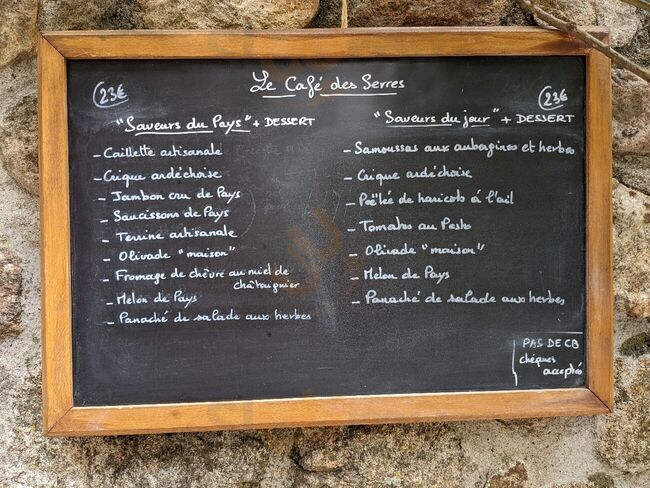 Le Café des Serres
23€
"Saveurs du Pays" + DESSERT
- Caillette artisanale
- Crique ardéchoise
- Jambon cru de Pays
- Saucissons de Pays
- Terrine artisanale
- Olivade "maison"
- Fromage de chèvre au miel de
châtaignier
- Melon de Pays
- Panaché de salade aux herbes
23€
"Saveurs du jour" + DESSERT
- Samoussas aux aubergines et herbes
- Crique ardéchoise
- Poëlée de haricots á l'ail
- Tomates au Pesto
- Olivade "maison"
- Melon de Pays
- Panaché de salade aux herbes
PAS DE CB
chèques
acceptés